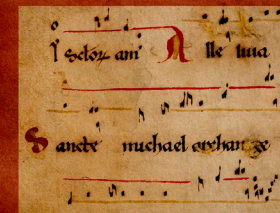 sctor am A lle luia
Sancte michael archan ge